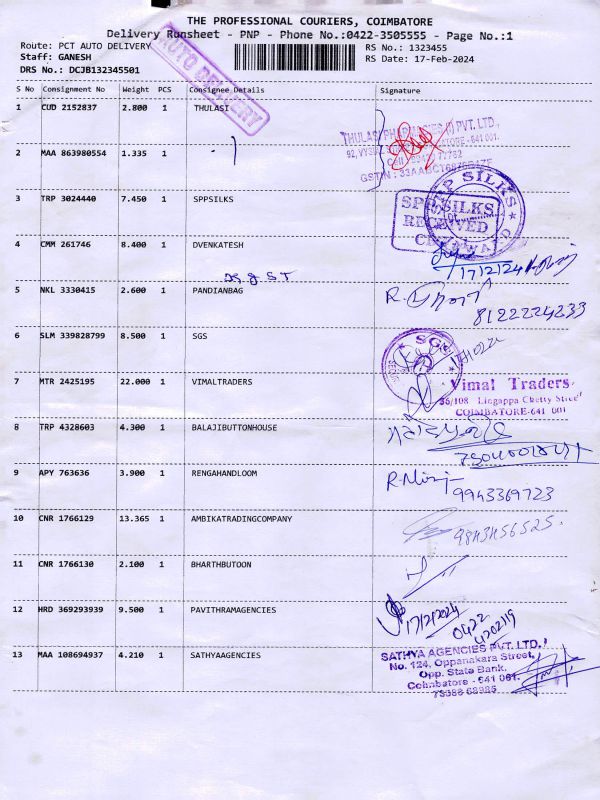 THE PROFESSIONAL COURIERS, COIMBATORE
Delivery Runsheet - PNP - Phone No.:0422-3505555 - Page No.:1
Route: PCT AUTO DELIVERY
RS No.: 1323455
Staff: GANESH
RS Date: 17-Feb-2024
DRS No.: DCJB132345501
AUTO DELIVERY
S No Consignment No Weight PCS Consignee Details Signature
1 CUD 2152837 2.800 1 THULASI
THULASI PHARMACIES (I) PVT. LTD.,
2 MAA 863980554 1.335 1
3 TRP 3024440 7.450 1 SPPSILKS
SPP SILKS
SPP SILKS
RECEIVED
4 CMM 261746 8.400 1 DVENKATESH
17/2/24
5 NKL 3330415 2.600 1 PANDIANBAG
8122224233
6 SLM 339828799 8.500 1 SGS
SGS
7 MTR 2425195 22.000 1 VIMALTRADERS
Vimal Traders
36/108 Lingappa Chetty Street
COIMBATORE-641 001
8 TRP 4328603 4.300 1 BALAJIBUTTONHOUSE
9 APY 763636 3.900 1 RENGAHANDLOOM
9943369723
10 CNR 1766129 13.365 1 AMBIKATRADINGCOMPANY
9843456525
11 CNR 1766130 2.100 1 BHARTHBUTOON
12 HRD 369293939 9.500 1 PAVITHRAMAGENCIES
17/2/2024
0422
4202119
13 MAA 108694937 4.210 1 SATHYAAGENCIES
SATHYA AGENCIES PVT. LTD.,
No. 124, Oppanakara Street,
Opp. State Bank,
Coimbatore - 641 001.
73388 68985